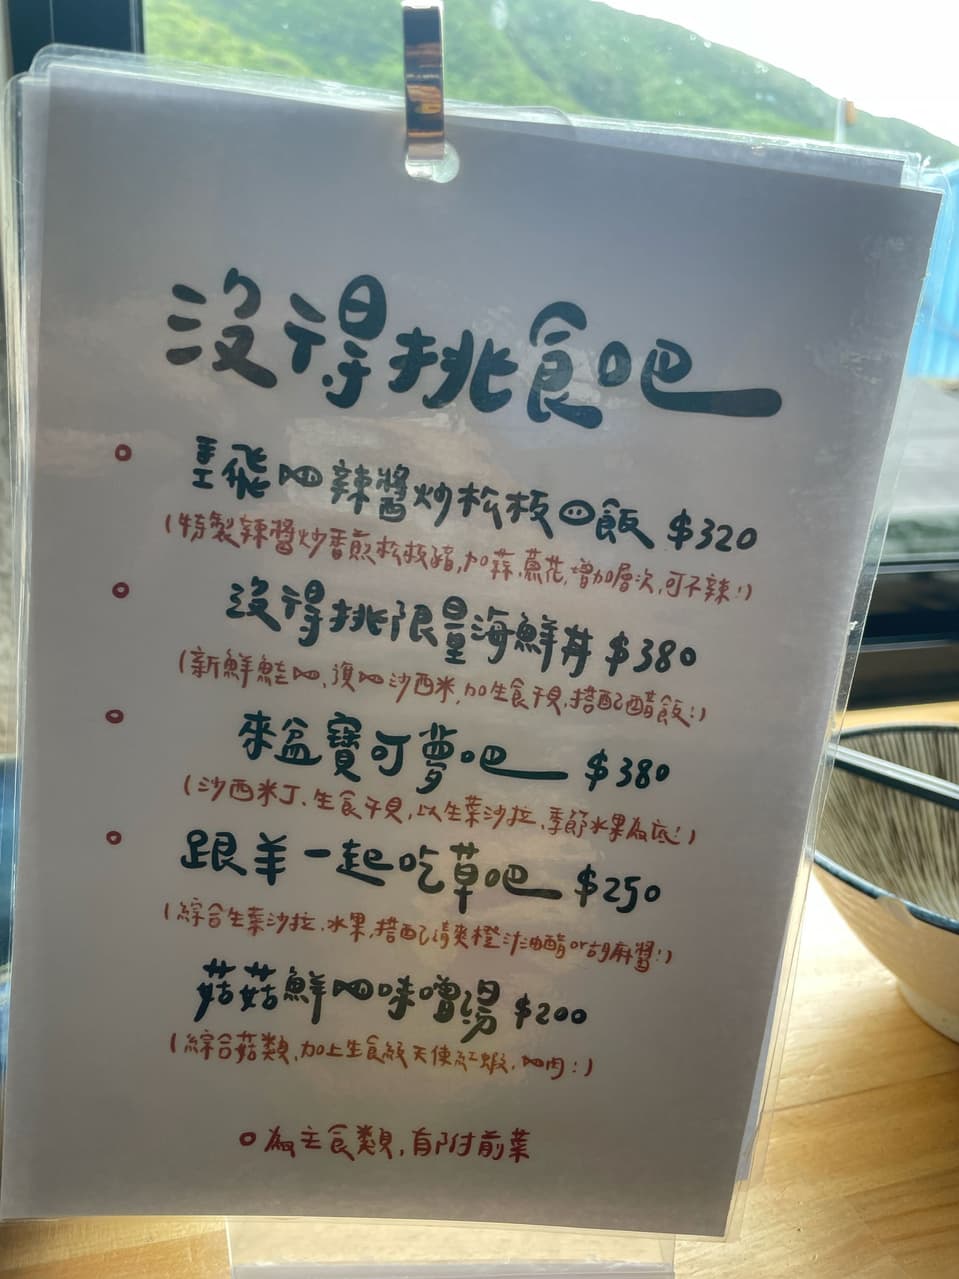 沒得挑食吧
飛 辣醬炒松板 飯 $320
(特製辣醬炒香煎松板豬,加蒜、蔥花,增加層次,可不辣!)
沒得挑限量海鮮丼 $380
(新鮮鮭 、 沙西米,加生食干貝,搭配醋飯:)
來盆寶可夢吧 $380
(沙西米丁、生食干貝,以生菜沙拉、季節水果為底!)
跟羊一起吃草吧 $250
(綜合生菜沙拉、水果,搭配清爽橙汁油醋or胡麻醬!)
菇菇鮮 味噌湯 $200
(綜合菇類,加上生食級天使紅蝦、 肉:)
為主食類,有附前菜